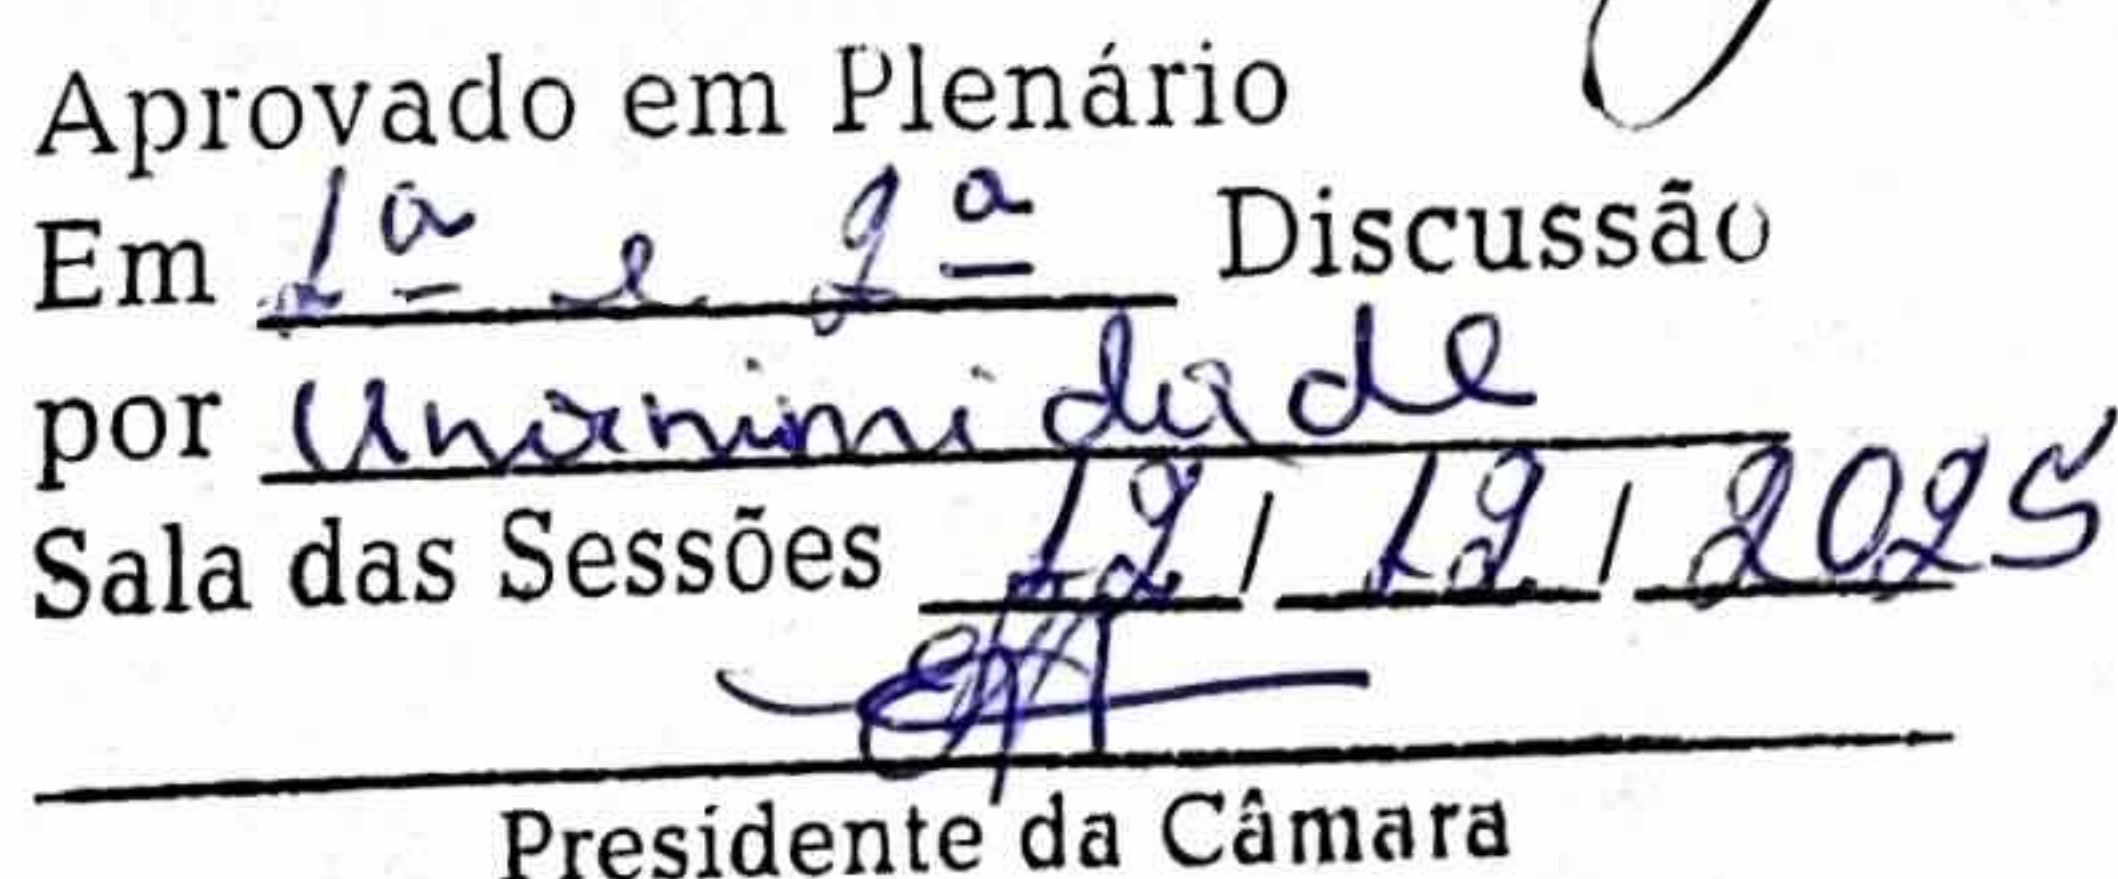 Aprovado em Plenário
Em 1ª e 2ª Discussão
por Unanimidade
Sala das Sessões 12/12/2025
Presidente da Câmara